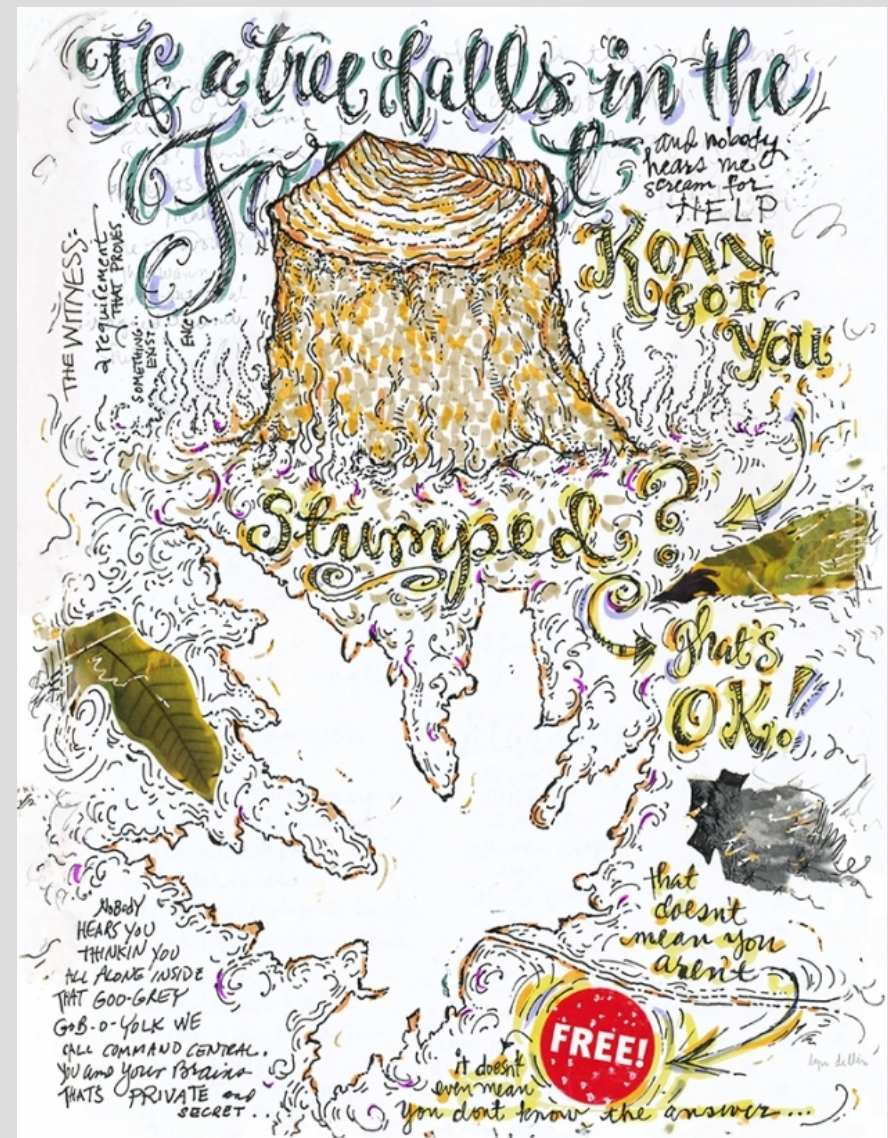 If a tree falls in the
Forest,
and nobody
hears me
scream for
HELP
KOAN
GOT
You
THE WITNESS:
a requirement
THAT PROVES
SOMETHING
EXIST
ENCE?
Stumped?
that's
OK!
that
doesn't
mean you
aren't
FREE!
it doesn't
even mean
you dont know the answer...
NOBODY
HEARS YOU
THINKIN YOU
ALL ALONE INSIDE
THAT GOO-GREY
GOB-O-YOLK WE
CALL COMMAND CENTRAL.
You and your Brains
THATS PRIVATE and
SECRET...